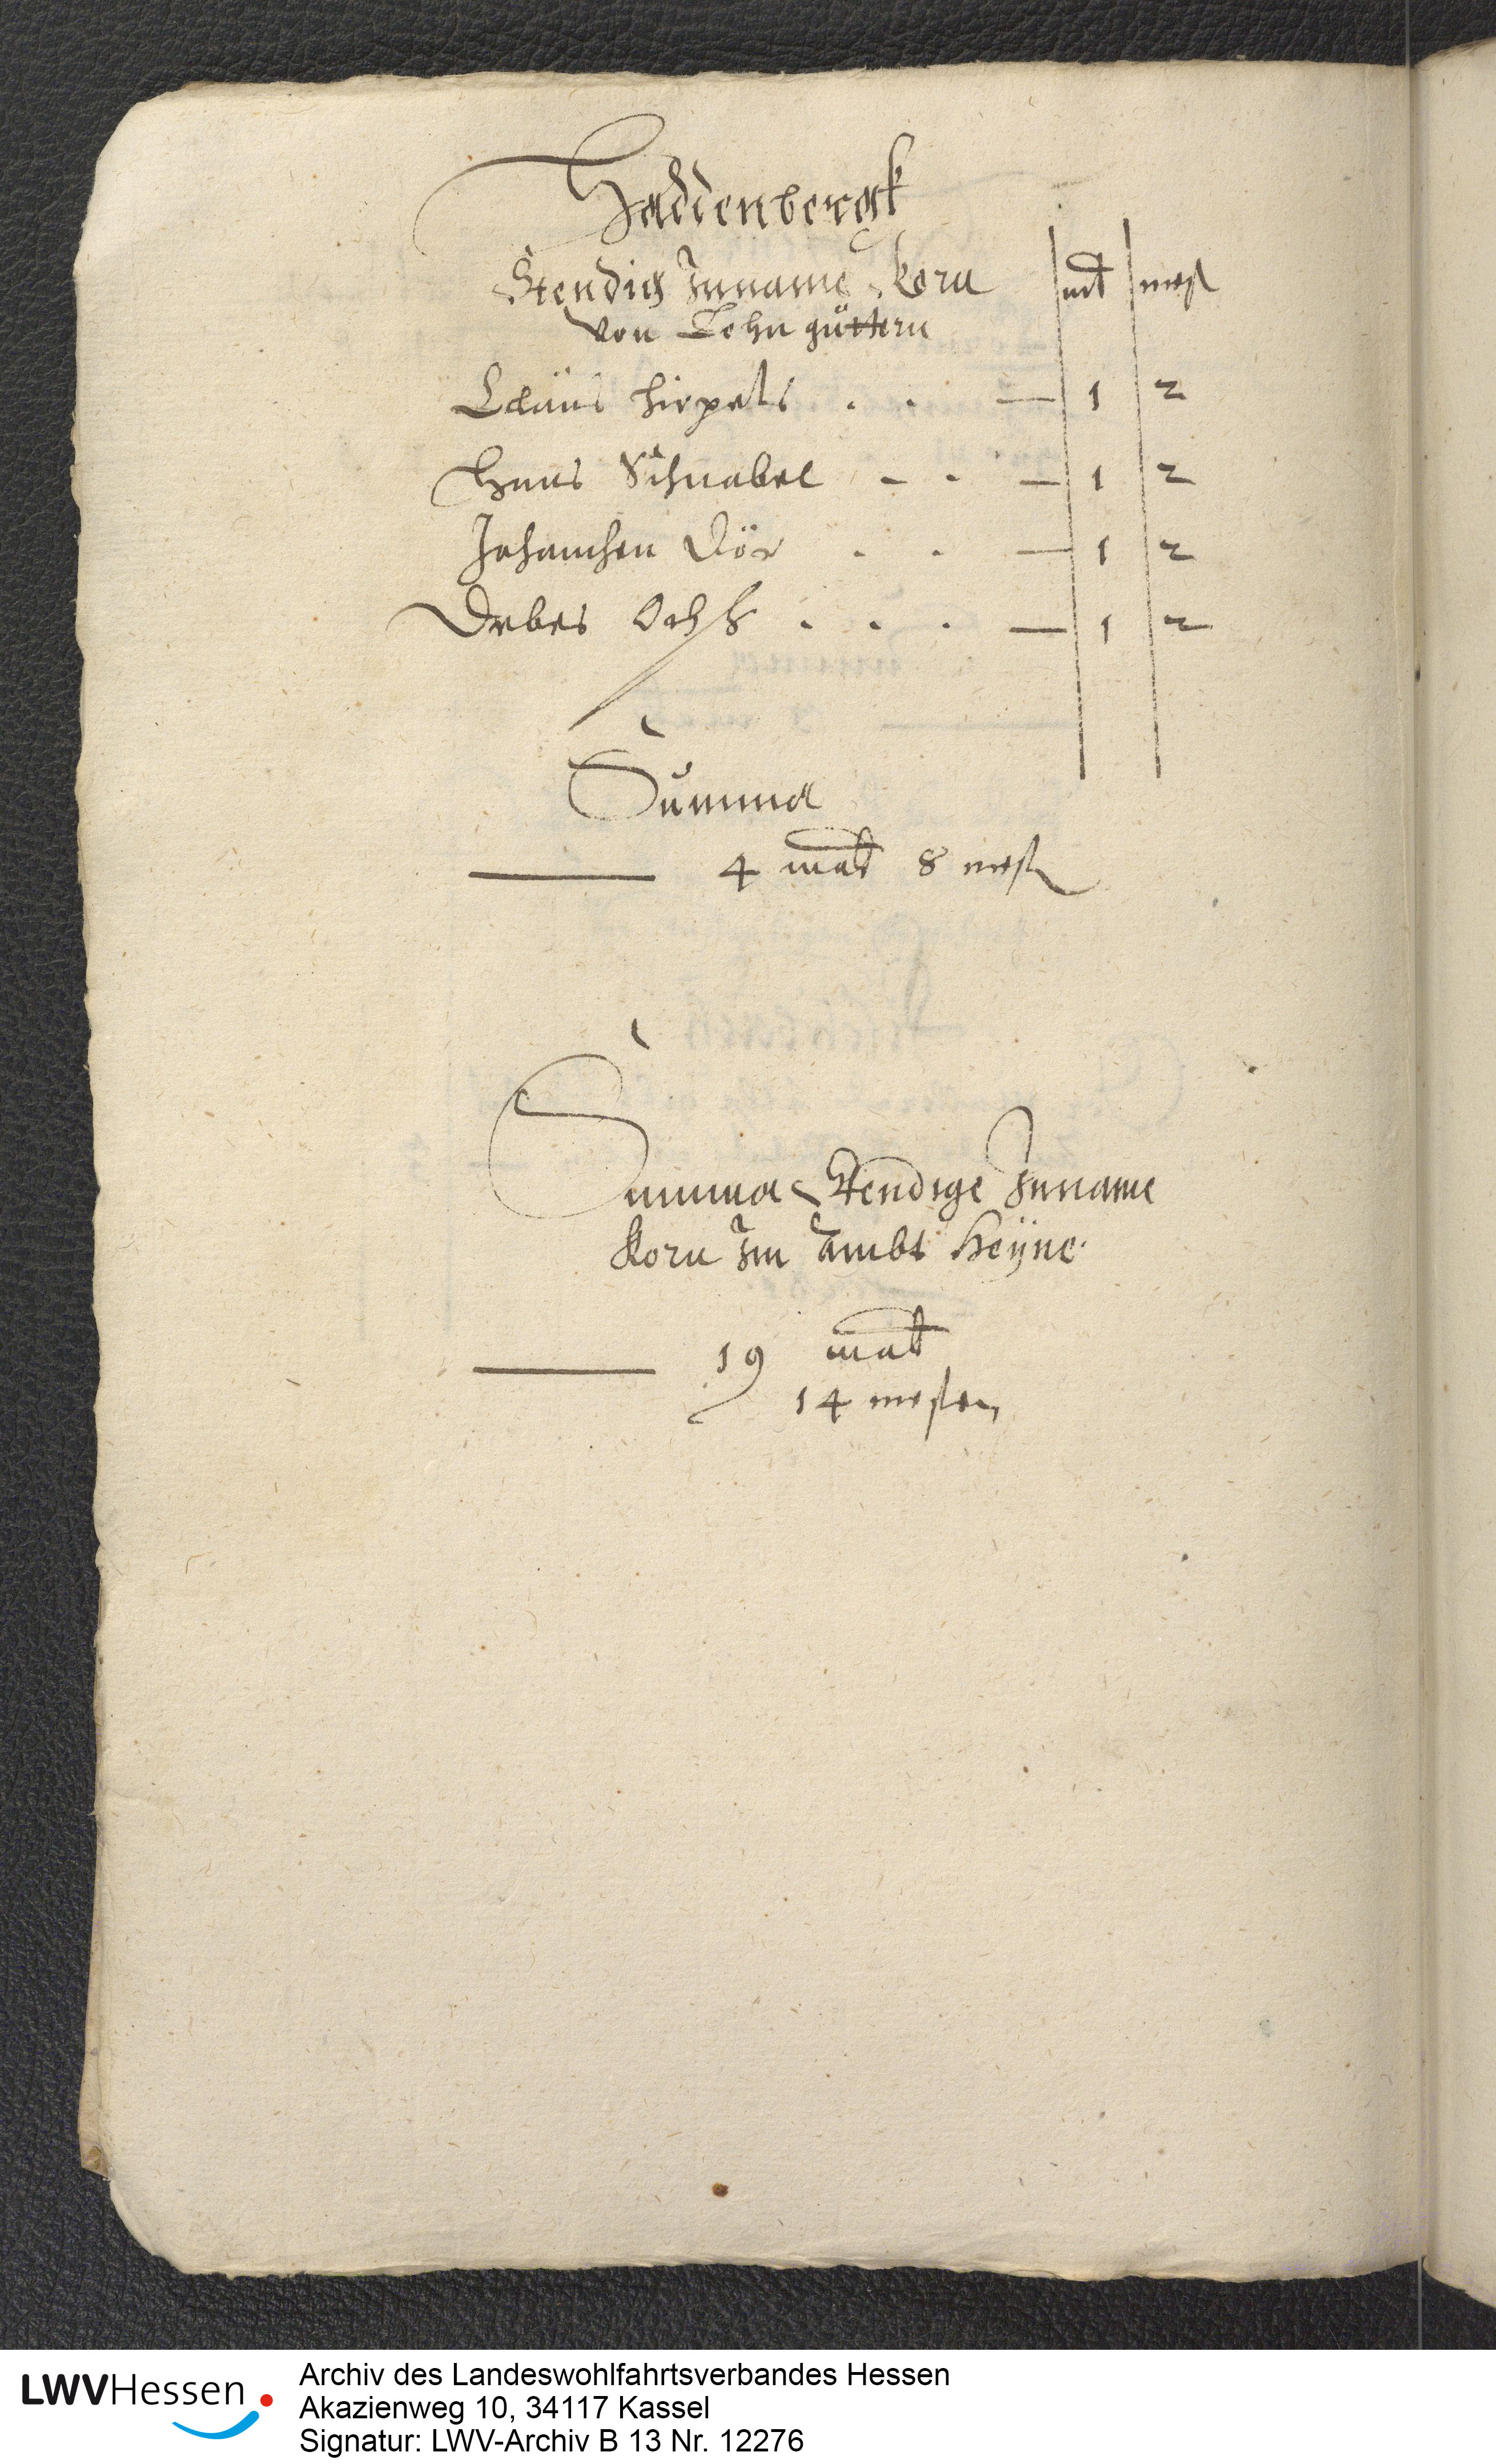 Haddenbergk
Stendig Inname Korn | mlt | mest
von Lehn güttern
Claüs hirpels . . — 1 2
Hans Schnabel - - — 1 2
Johanchen Dör . . — 1 2
Debes Ochs . . . — 1 2
Summa
4 malt 8 mest
Summa Stendige Inname
Korn Im Ambt Heÿne.
19 malt
14 mesten
LWVHessen
Archiv des Landeswohlfahrtsverbandes Hessen
Akazienweg 10, 34117 Kassel
Signatur: LWV-Archiv B 13 Nr. 12276